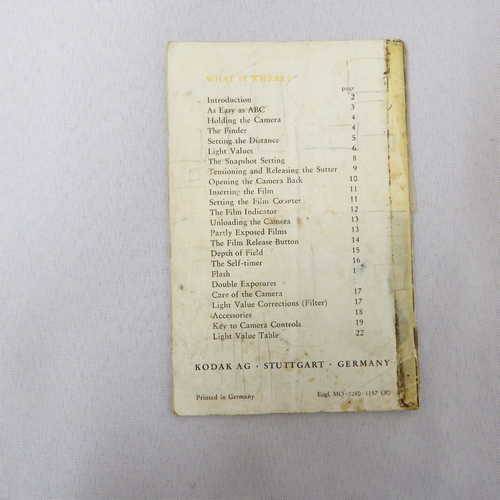 WHAT IS WHERE?
page
Introduction 2
As Easy as ABC 3
Holding the Camera 4
The Finder 4
Setting the Distance 5
Light Values 6
The Snapshot Setting 8
Tensioning and Releasing the Sutter 9
Opening the Camera Back 10
Inserting the Film 11
Setting the Film Counter 11
The Film Indicator 12
Unloading the Camera 13
Partly Exposed Films 13
The Film Release Button 14
Depth of Field 15
The Self-timer 16
Flash 1
Double Exposures
Care of the Camera 17
Light Value Corrections (Filter) 17
Accessories 18
Key to Camera Controls 19
Light Value Table 22
KODAK AG · STUTTGART · GERMANY
Printed in Germany Engl.